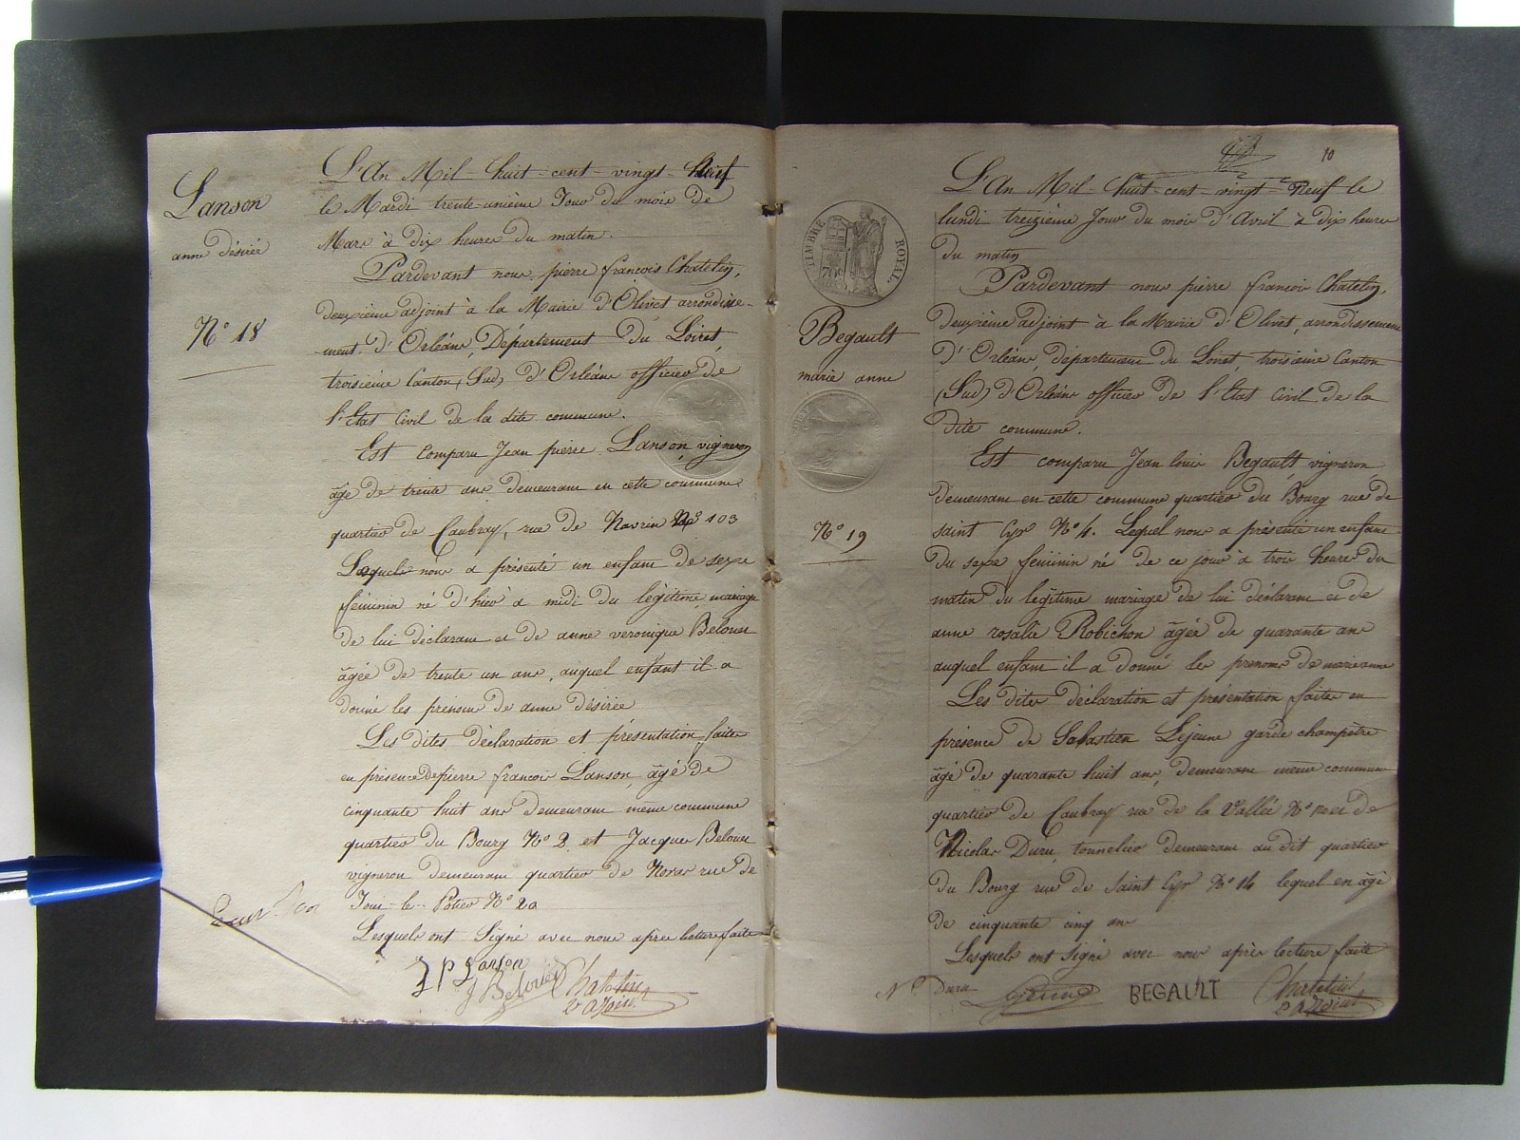 Lanson
anne désirée
N° 18
L'An Mil-huit-cent-vingt-Neuf
le Mardi trente-unième Jour du mois de
Mars à dix heures du matin.
Pardevant nous pierre françois Chatelin,
deuxième adjoint à la Mairie d'Olivet arrondisse-
-ment d'Orléans, Département du Loiret,
troisième Canton (Sud) d'Orléans officier de
l'Etat Civil de la dite commune.
Est Comparu Jean pierre Lanson, vigneron
âgé de trente ans demeurant en cette commune
quartier de Caubray, rue de Navrin N° 103
Lequel nous a présenté un enfant de sexe
féminin né d'hier à midi du légitime mariage
de lui déclarant et de anne veronique Belouet
âgée de trente un ans, auquel enfant il a
donné les prénoms de anne désirée
Les dites déclaration et présentation faites
en présence de pierre françois Lanson, âgé de
cinquante huit ans demeurant même commune
quartier du Bourg N° 2 et Jacques Belouet
vigneron demeurant quartier de rue de
Jour-le-Potier N° 20
Lesquels ont Signé avec nous après lecture faite
J P Lanson
J Belouet Chatelin
2e adjoint
10
TIMBRE ROYAL
70c
Begault
marie anne
N° 19
L'An Mil-huit-cent-vingt-Neuf le
lundi treizième Jour du mois d'Avril à dix heures
du matin
Pardevant nous pierre françois Chatelin,
Deuxième adjoint à la Mairie d'Olivet, arrondissement
d'Orléans, département du Loiret, troisième Canton
(Sud) d'Orléans officier de l'Etat Civil de la
dite commune.
Est comparu Jean louis Begault, vigneron
demeurant en cette commune quartier du Bourg rue de
saint Cyr N° 4. Lequel nous a présenté un enfant
du sexe féminin né de ce jour à trois heures du
matin du légitime mariage de lui déclarant et de
anne rosalie Robichon âgée de quarante ans
auquel enfant il a donné les prénoms de marie anne
Les dites déclaration et présentation faites en
présence de Sabastien Lejeune garde champêtre
âgé de quarante huit ans, demeurant même commune
quartier de Caubray rue de la Vallée N° et de
Nicolas Duru, tonnelier demeurant au dit quartier
du Bourg rue de Saint Cyr N° 14 lequel en âgé
de cinquante cinq ans
Lesquels ont Signé avec nous après lecture faite
N. Duru BEGAULT Chatelin
2e adjoint